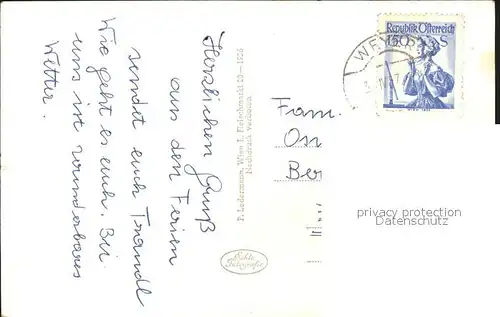 Herzlichen Gruß
aus den Ferien
sendet euch Traudl
Wie geht es euch. Bei
uns ist wunderbares
Wetter.
P. Ledermann, Wien I, Fleischmarkt 20 — 1956
Nachdruck verboten
Echte
Fotografie
Republik Österreich
1·50 S
WE
Fam.
On
Ber
privacy protection
Datenschutz